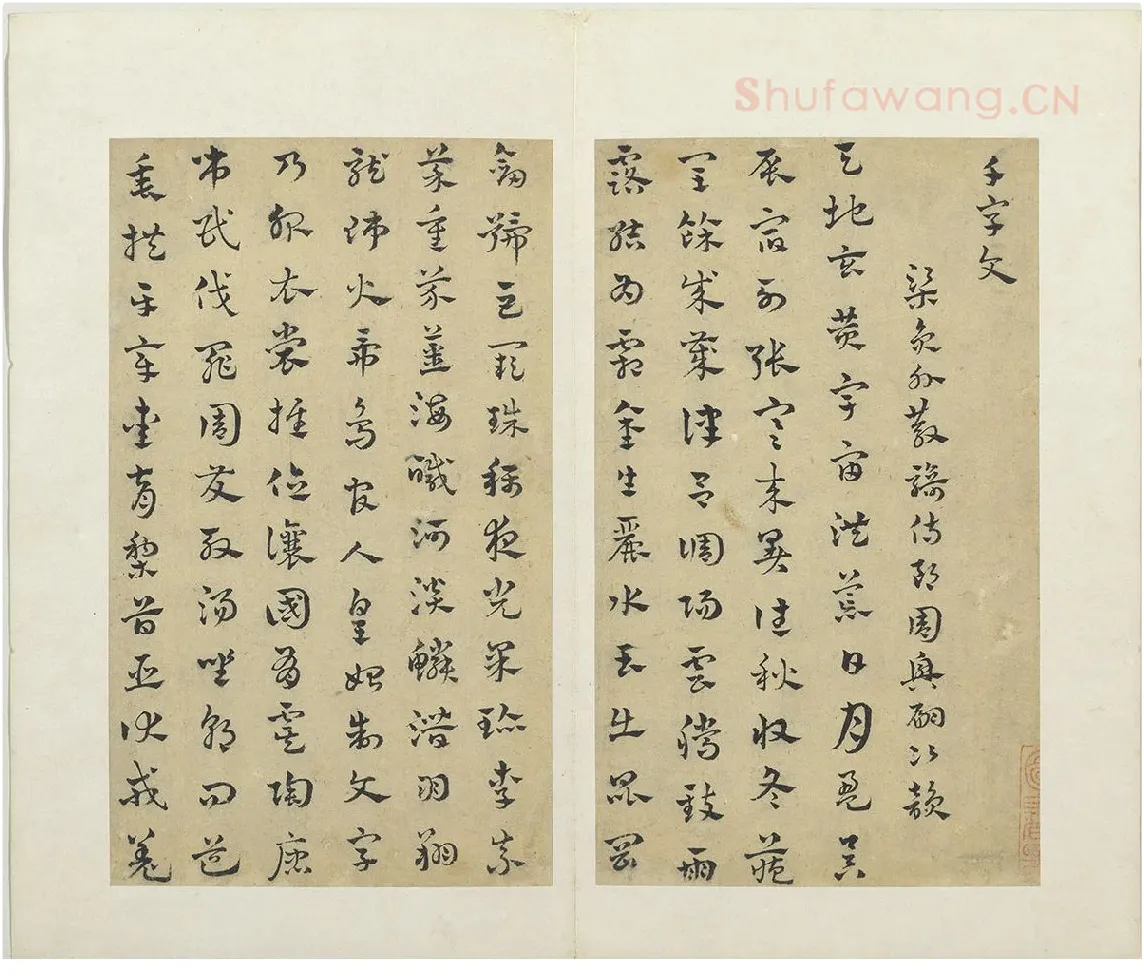 Shufawang.CN
千字文
梁員外散騎侍郎周興嗣次韻
天地玄黃宇宙洪荒日月盈昃
辰宿列張寒來暑往秋收冬藏
閏餘成歲律呂調陽雲騰致雨
露結為霜金生麗水玉出崑岡
劍號巨闕珠稱夜光果珍李柰
菜重芥薑海鹹河淡鱗潛羽翔
龍師火帝鳥官人皇始制文字
乃服衣裳推位讓國有虞陶唐
弔民伐罪周發殷湯坐朝問道
垂拱平章愛育黎首臣伏戎羌